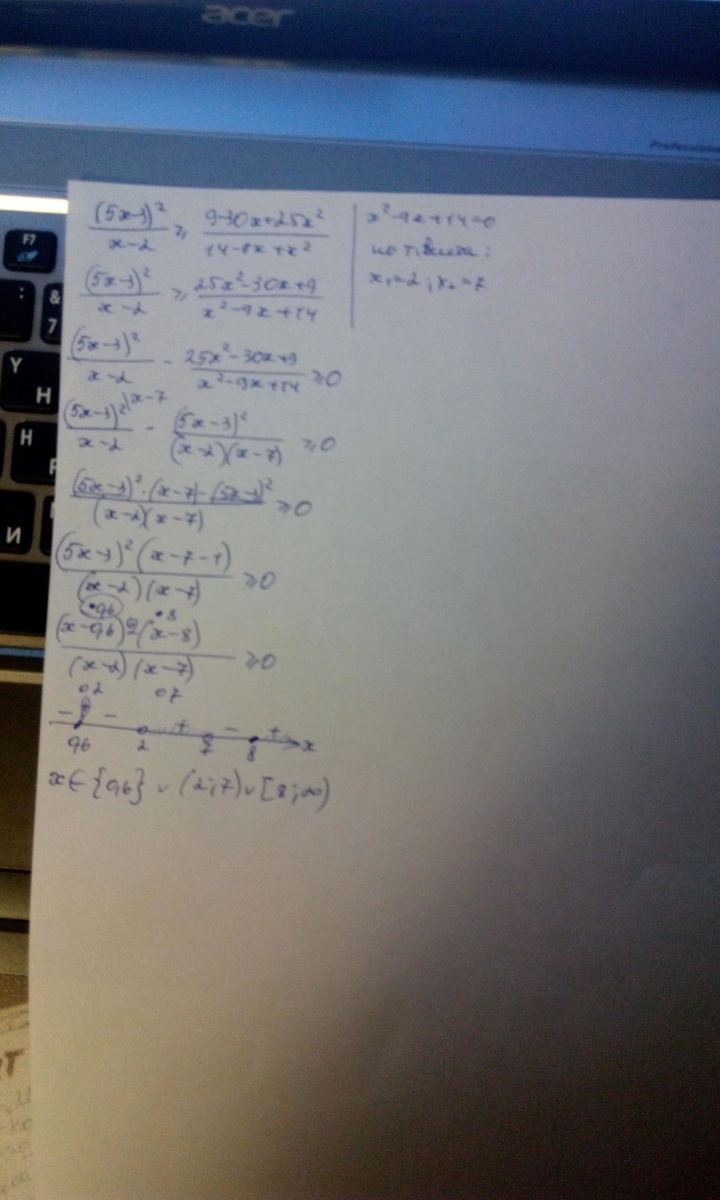 acer
Professional
(5x-3)²/(x-2) ≥ (9-30x+25x²)/(14-9x+x²)
(5x-3)²/(x-2) ≥ (25x²-30x+9)/(x²-9x+14)
(5x-3)²/(x-2) - (25x²-30x+9)/(x²-9x+14) ≥0
(5x-3)²|x-7/(x-2) - (5x-3)²/((x-2)(x-7)) ≥0
((5x-3)²·(x-7)-(5x-3)²)/((x-2)(x-7)) ≥0
((5x-3)²(x-7-1))/((x-2)(x-7)) ≥0
•0,6 •8
((x-0,6)²(x-8))/((x-2)(x-7)) ≥0
o2 o7
- - + - +
0,6 2 7 8 x
x∈{0,6} ∪ (2;7) ∪ [8;∞)
x²-9x+14=0
по т.Виета:
x₁=2; x₂=7
F7
&
7
:
Y
Н
H
И